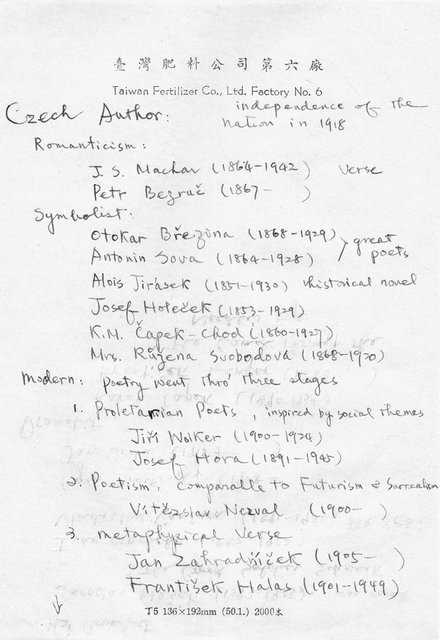 臺灣肥料公司第六廠
Taiwan Fertilizer Co., Ltd. Factory No. 6
Czech Author: independence of the
nation in 1918
Romanticism:
J. S. Machar (1864-1942) verse
Petr Bezruč (1867- )
Symbolist:
Otokar Březina (1868-1929)
Antonin Sova (1864-1928) } great poets
Alois Jirásek (1851-1930) historical novel
Josef Holeček (1853-1929)
K.M. Čapek-Chod (1860-1927)
Mrs. Růžena Svobodová (1868-1920)
Modern: Poetry went thro' three stages
1. Proletarian Poets, inspired by social themes
Jiří Wolker (1900-1924)
Josef Hora (1891-1945)
2. Poetism, comparable to Futurism & Surrealism
Vítězslav Nezval (1900- )
3. metaphysical Verse
Jan Zahradníček (1905- )
František Halas (1901-1949)
T5 136×192mm (50.1.) 2000本